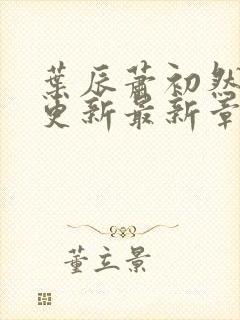 葉辰蕭初然
更新最新章
董立景